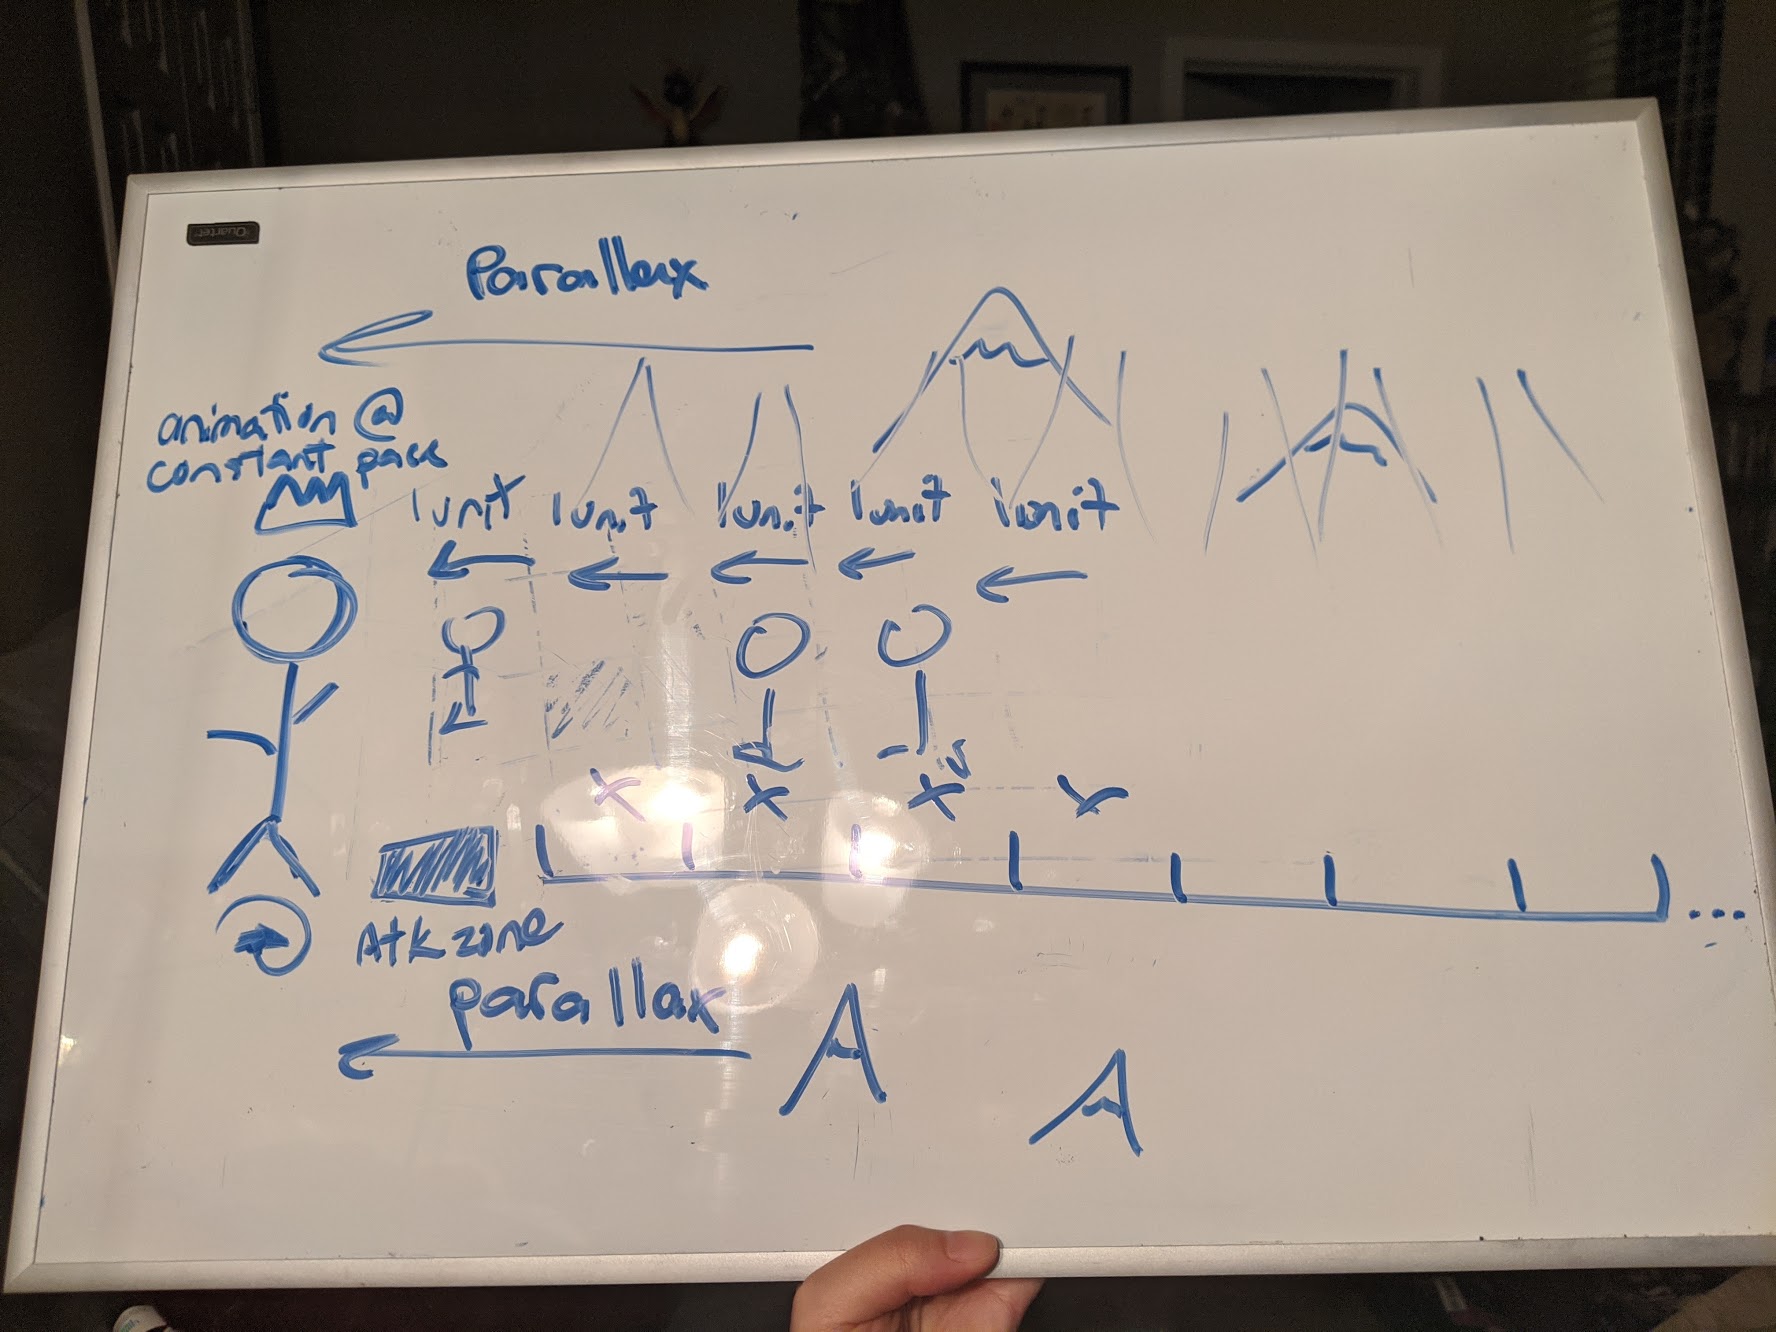 Quartet
Parallax
animation @
constant pace
1 unit 1 unit 1 unit 1 unit 1 unit
x x x x
Atk zone
parallax
...